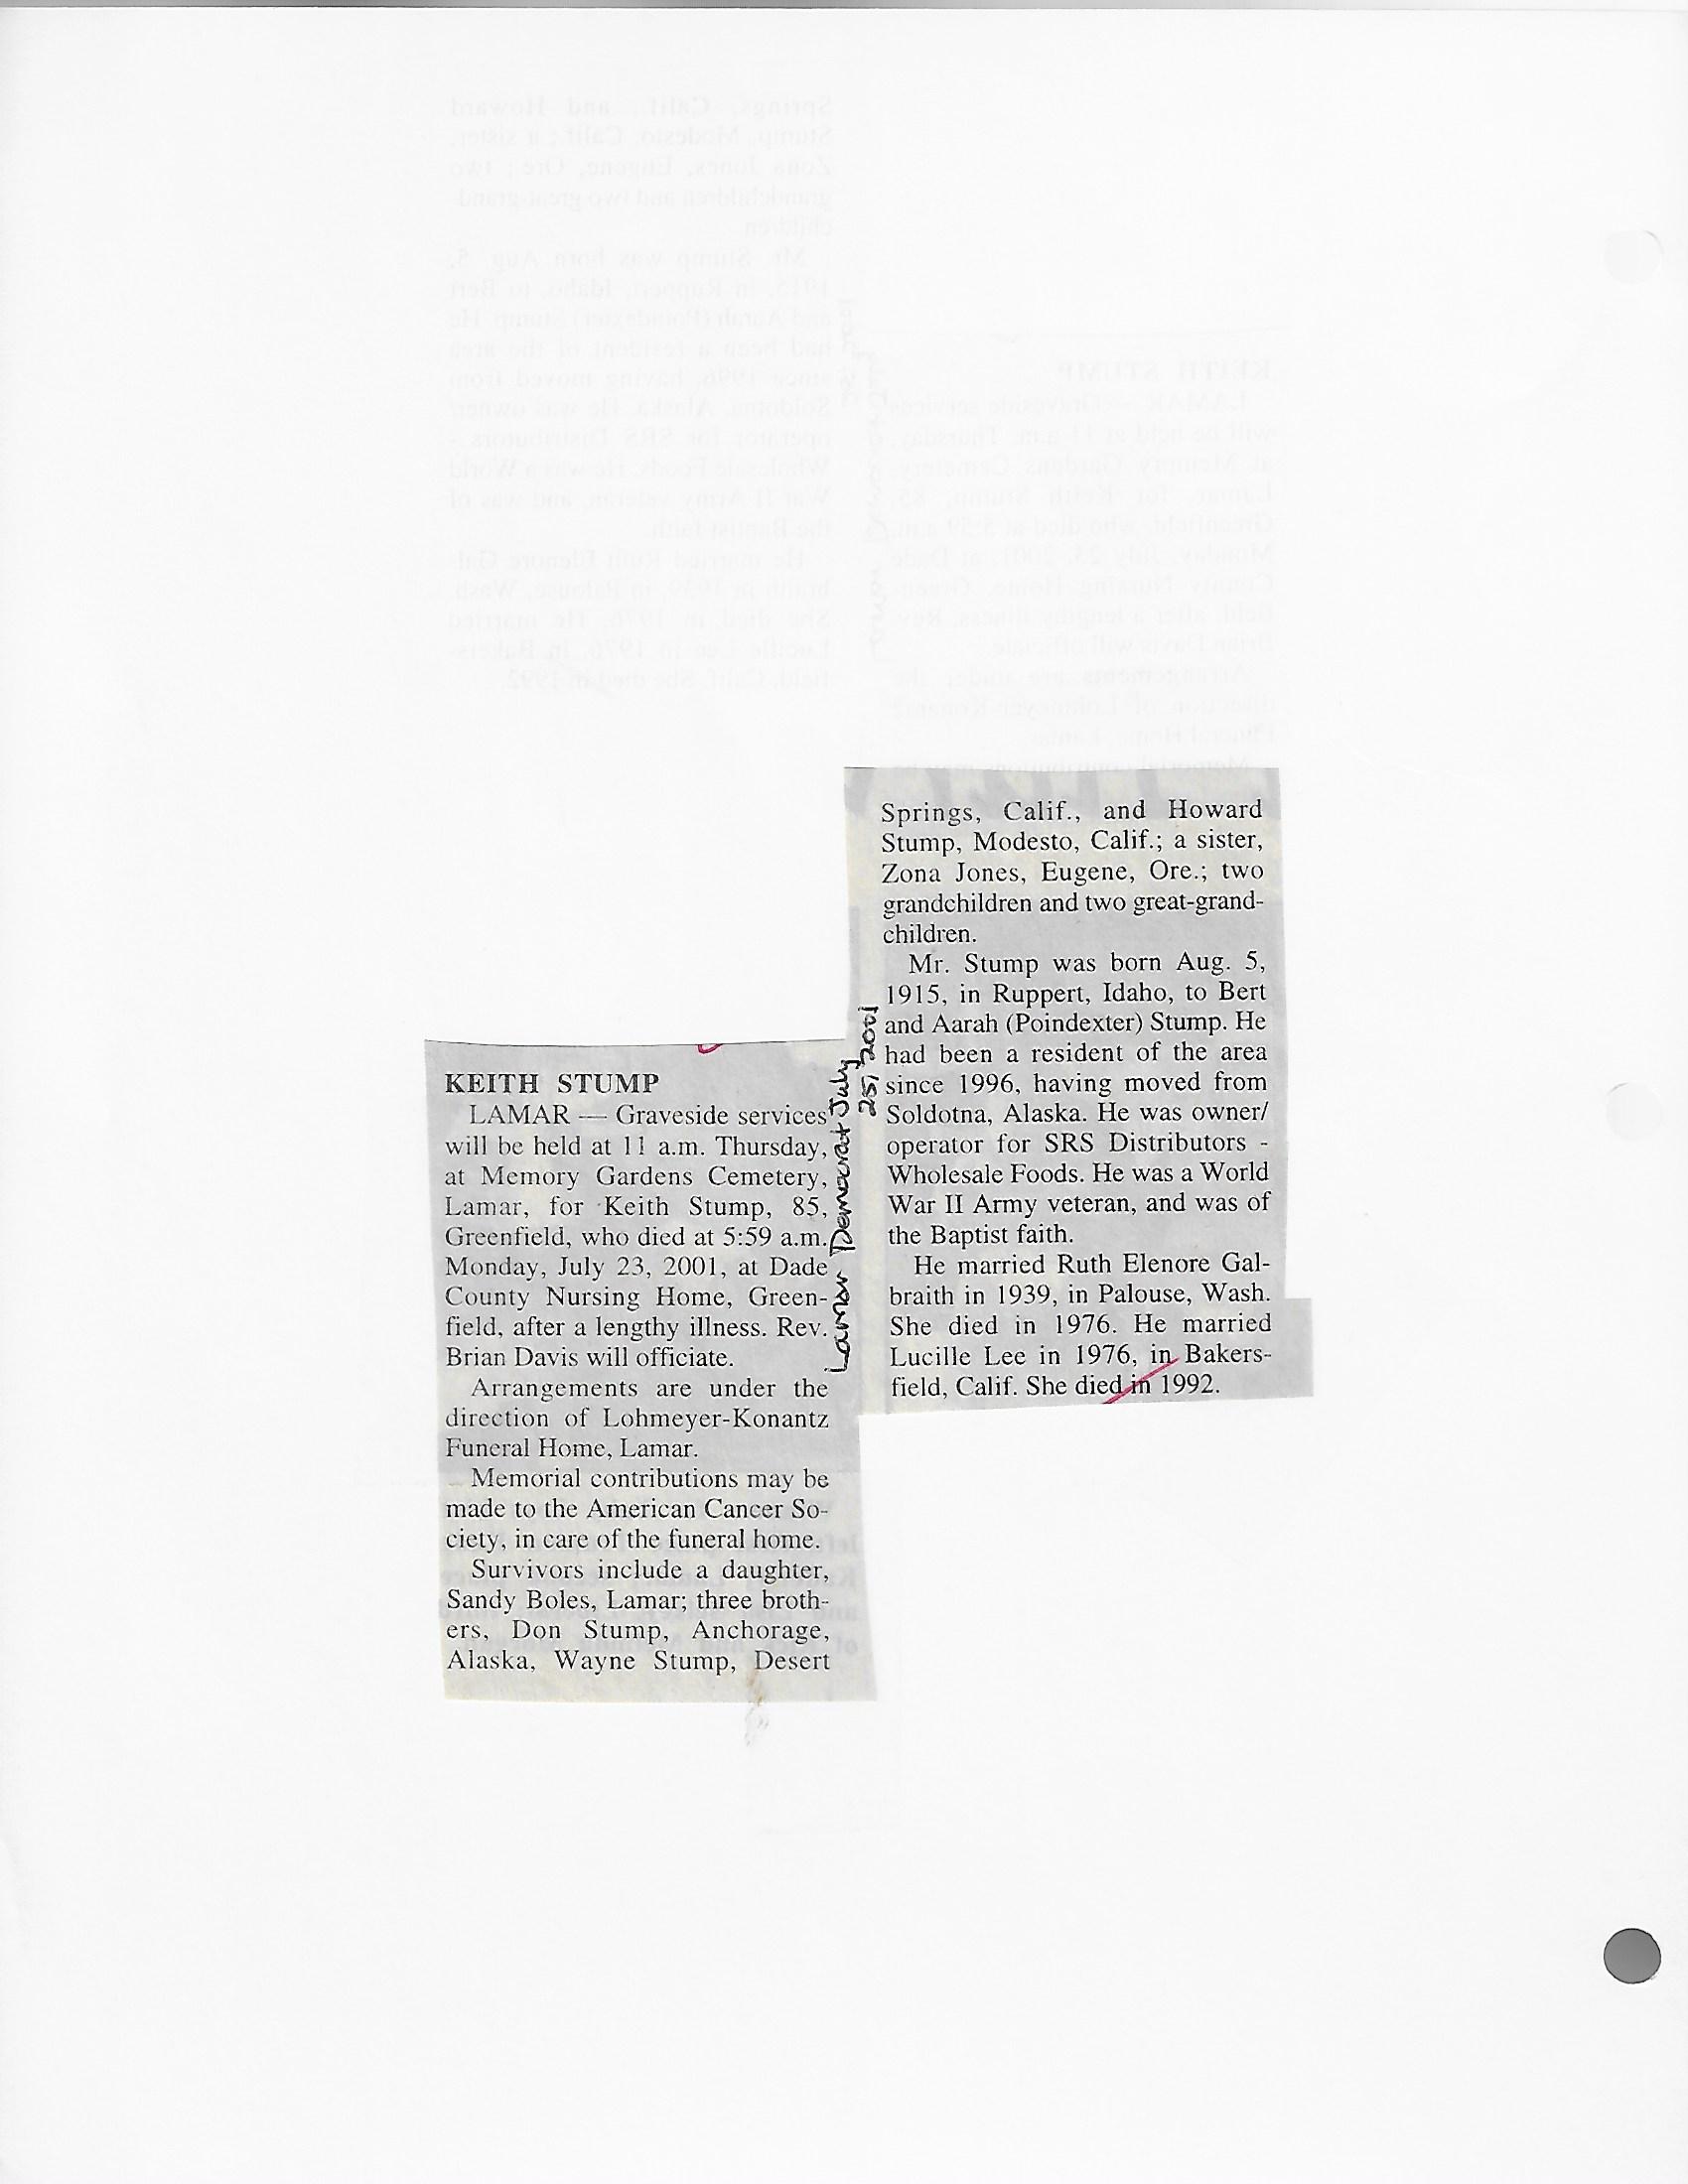 KEITH STUMP
LAMAR — Graveside services
will be held at 11 a.m. Thursday,
at Memory Gardens Cemetery,
Lamar, for Keith Stump, 85,
Greenfield, who died at 5:59 a.m.
Monday, July 23, 2001, at Dade
County Nursing Home, Green-
field, after a lengthy illness. Rev.
Brian Davis will officiate.
Arrangements are under the
direction of Lohmeyer-Konantz
Funeral Home, Lamar.
Memorial contributions may be
made to the American Cancer So-
ciety, in care of the funeral home.
Survivors include a daughter,
Sandy Boles, Lamar; three broth-
ers, Don Stump, Anchorage,
Alaska, Wayne Stump, Desert
Springs, Calif., and Howard
Stump, Modesto, Calif.; a sister,
Zona Jones, Eugene, Ore.; two
grandchildren and two great-grand-
children.
Mr. Stump was born Aug. 5,
1915, in Ruppert, Idaho, to Bert
and Aarah (Poindexter) Stump. He
had been a resident of the area
since 1996, having moved from
Soldotna, Alaska. He was owner/
operator for SRS Distributors -
Wholesale Foods. He was a World
War II Army veteran, and was of
the Baptist faith.
He married Ruth Elenore Gal-
braith in 1939, in Palouse, Wash.
She died in 1976. He married
Lucille Lee in 1976, in Bakers-
field, Calif. She died in 1992.
Lamar Democrat July
25, 2001